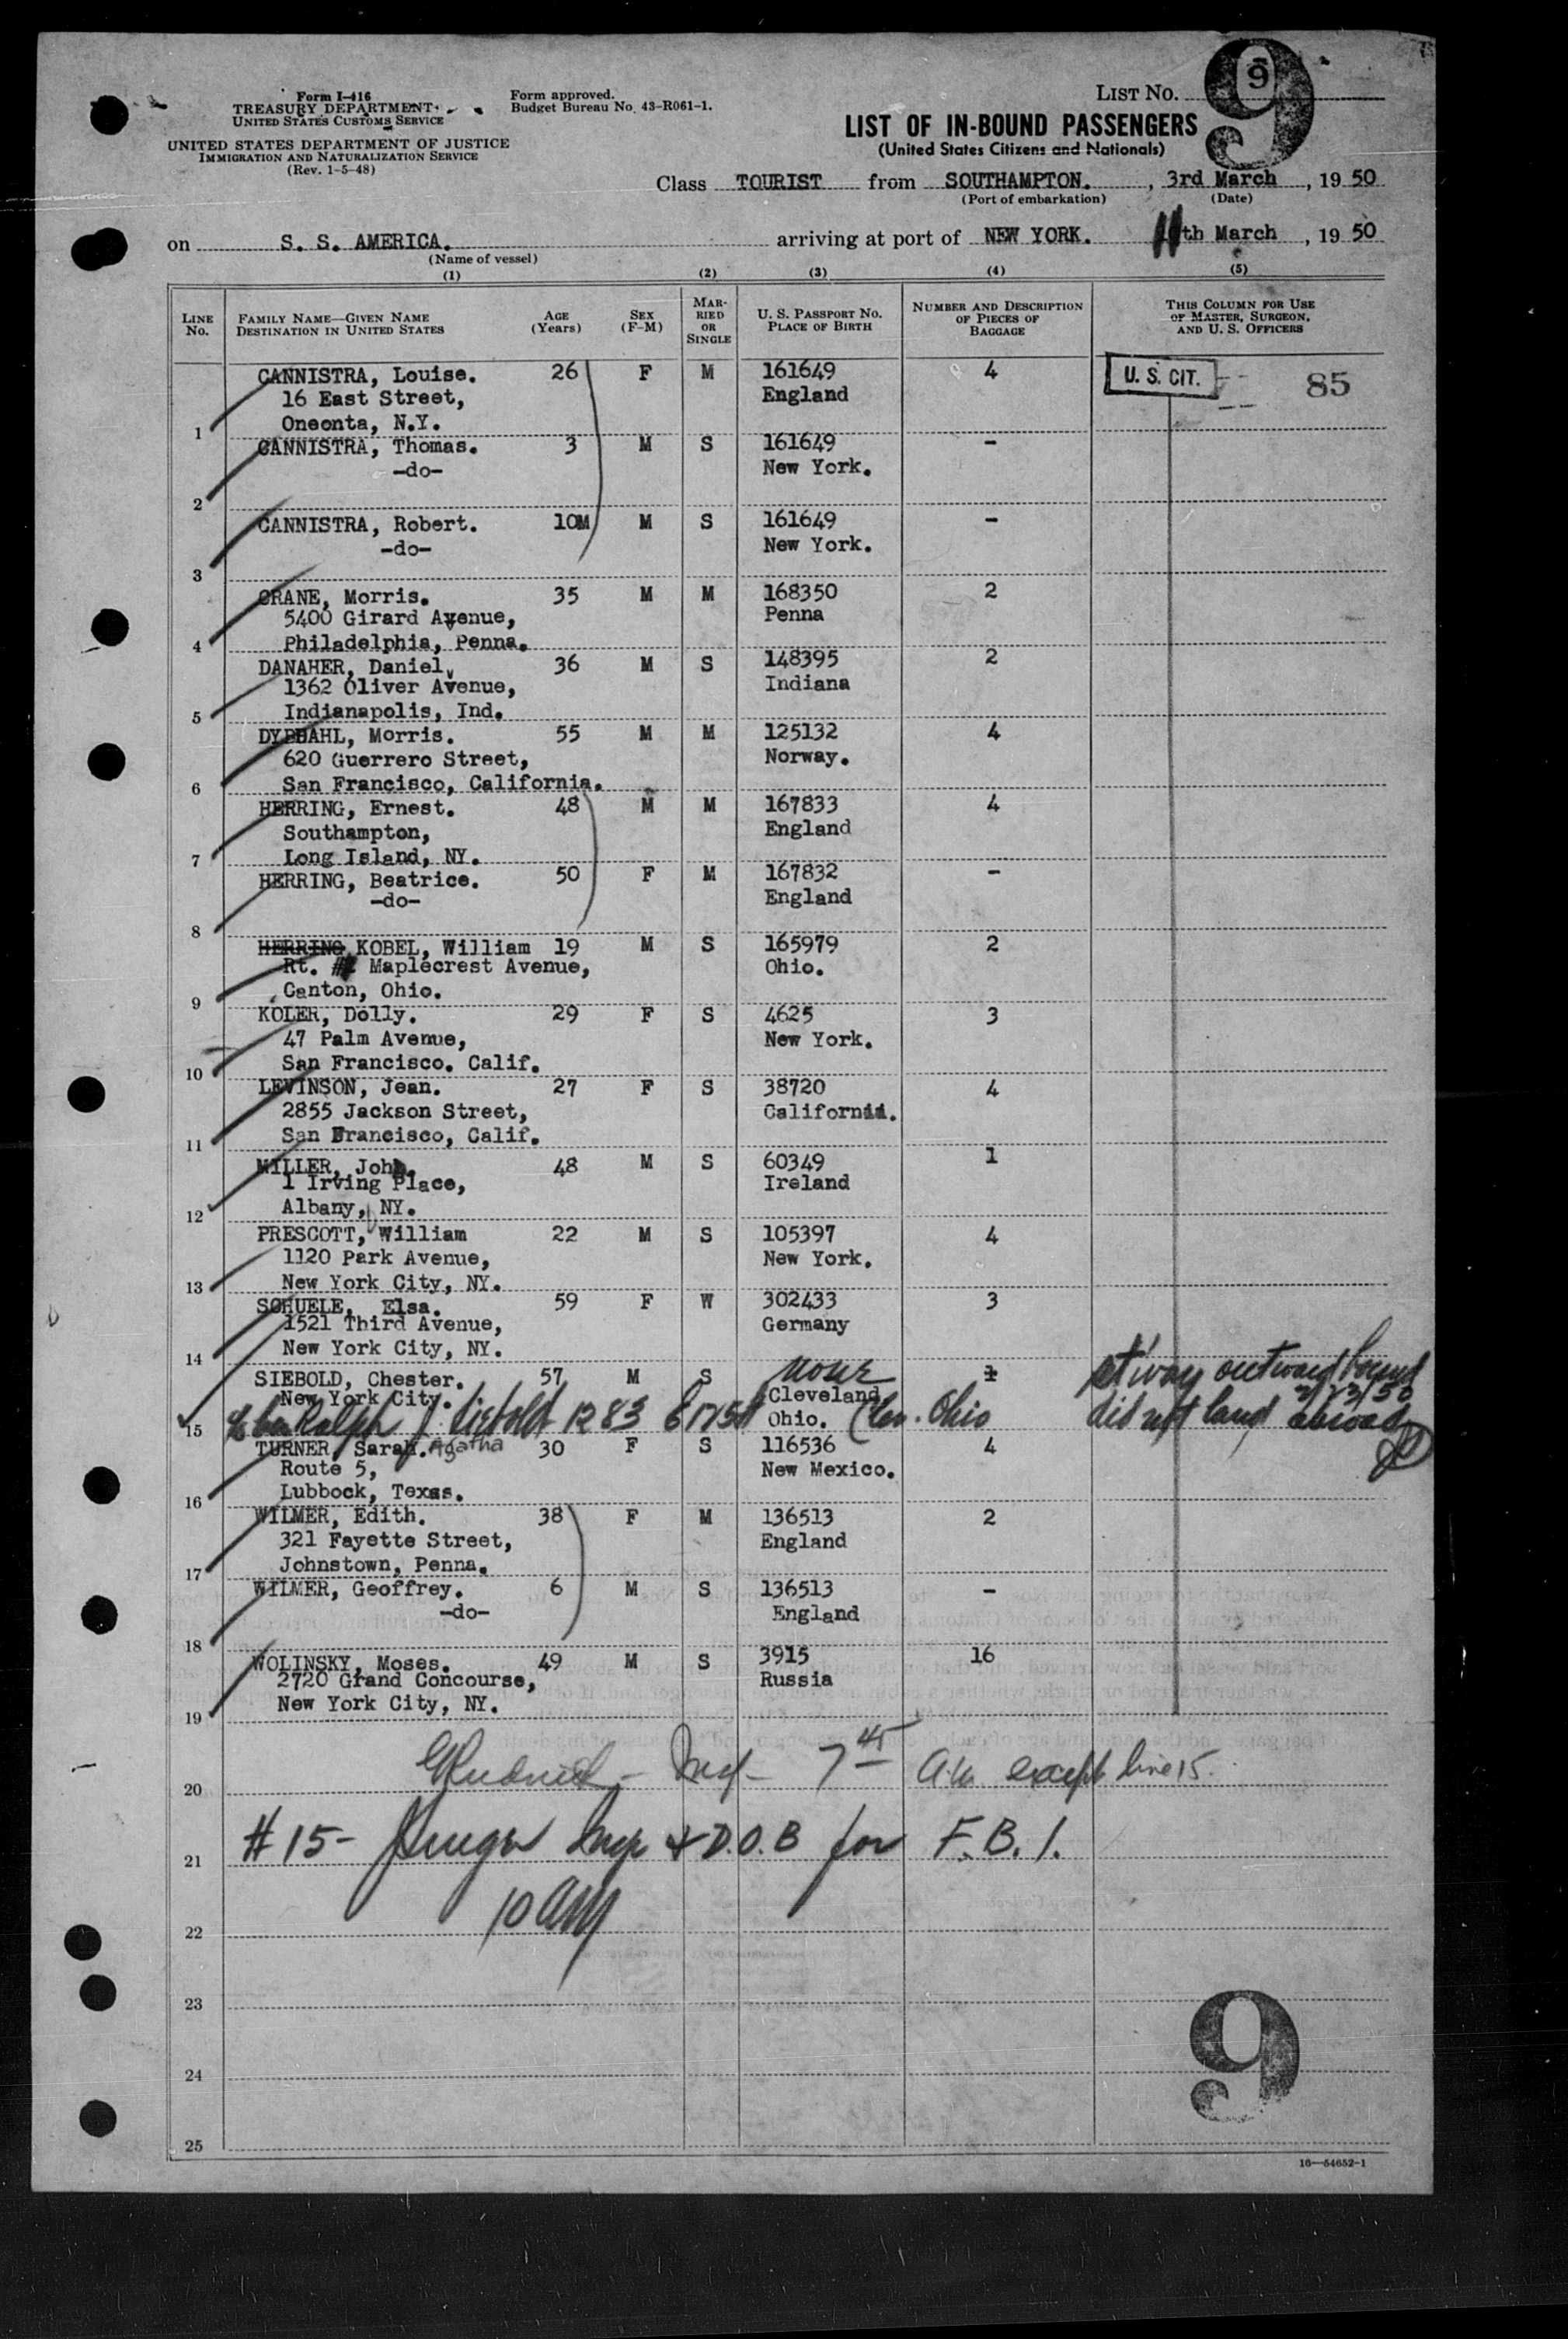 Form I-416
TREASURY DEPARTMENT
UNITED STATES CUSTOMS SERVICE
UNITED STATES DEPARTMENT OF JUSTICE
IMMIGRATION AND NATURALIZATION SERVICE
(Rev. 1-5-48)
Form approved.
Budget Bureau No. 43-R061-1.
LIST NO. 9
9
LIST OF IN-BOUND PASSENGERS
(United States Citizens and Nationals)
Class TOURIST from SOUTHAMPTON. , 3rd March , 19 50
(Port of embarkation) (Date)
on S. S. AMERICA. arriving at port of NEW YORK. 11th March , 19 50
(Name of vessel)
(1) (2) (3) (4) (5)
LINE NO. FAMILY NAME—GIVEN NAME DESTINATION IN UNITED STATES AGE (Years) SEX (F-M) MARRIED OR SINGLE U. S. PASSPORT NO. PLACE OF BIRTH NUMBER AND DESCRIPTION OF PIECES OF BAGGAGE THIS COLUMN FOR USE OF MASTER, SURGEON, AND U. S. OFFICERS
CANNISTRA, Louise. 26 F M 161649 4 U. S. CIT. 85
16 East Street, England
1 Oneonta, N.Y.
CANNISTRA, Thomas. 3 M S 161649 -
-do- New York.
2
CANNISTRA, Robert. 10M M S 161649 -
-do- New York.
3
CRANE, Morris. 35 M M 168350 2
5400 Girard Avenue, Penna
4 Philadelphia, Penna.
DANAHER, Daniel 36 M S 148395 2
1362 Oliver Avenue, Indiana
5 Indianapolis, Ind.
DYBDAHL, Morris. 55 M M 125132 4
620 Guerrero Street, Norway.
6 San Francisco, California.
HERRING, Ernest. 48 M M 167833 4
Southampton, England
7 Long Island, NY.
HERRING, Beatrice. 50 F M 167832 -
-do- England
8
HERRING KOBEL, William 19 M S 165979 2
Rt. # Maplecrest Avenue, Ohio.
9 Canton, Ohio.
KOLER, Dolly. 29 F S 4625 3
47 Palm Avenue, New York.
10 San Francisco. Calif.
LEVINSON, Jean. 27 F S 38720 4
2855 Jackson Street, California.
11 San Francisco, Calif.
MILLER, John. 48 M S 60349 1
1 Irving Place, Ireland
12 Albany, NY.
PRESCOTT, William 22 M S 105397 4
1120 Park Avenue, New York.
13 New York City, NY.
SCHUELE, Elsa. 59 F W 302433 3
1521 Third Avenue, Germany
14 New York City, NY.
SIEBOLD, Chester. 57 M S none 1 st'way outward bound
New York City. Cleveland 3/23/50
15 Ralph J. Siebold 1283 E 175 St Ohio. Clev. Ohio did not land abroad
TURNER, Sarah. Agatha 30 F S 116536 4
Route 5, New Mexico.
16 Lubbock, Texas.
WILMER, Edith. 38 F M 136513 2
321 Fayette Street, England
17 Johnstown, Penna.
WILMER, Geoffrey. 6 M S 136513 -
-do- England
18
WOLINSKY, Moses. 49 M S 3915 16
2720 Grand Concourse, Russia
19 New York City, NY.
20 Insp - 7 45 A.M. except line 15.
21 #15- Insp & D.O.B for F.B.I.
10 AM
22
23
24
9
25
16—54652-1